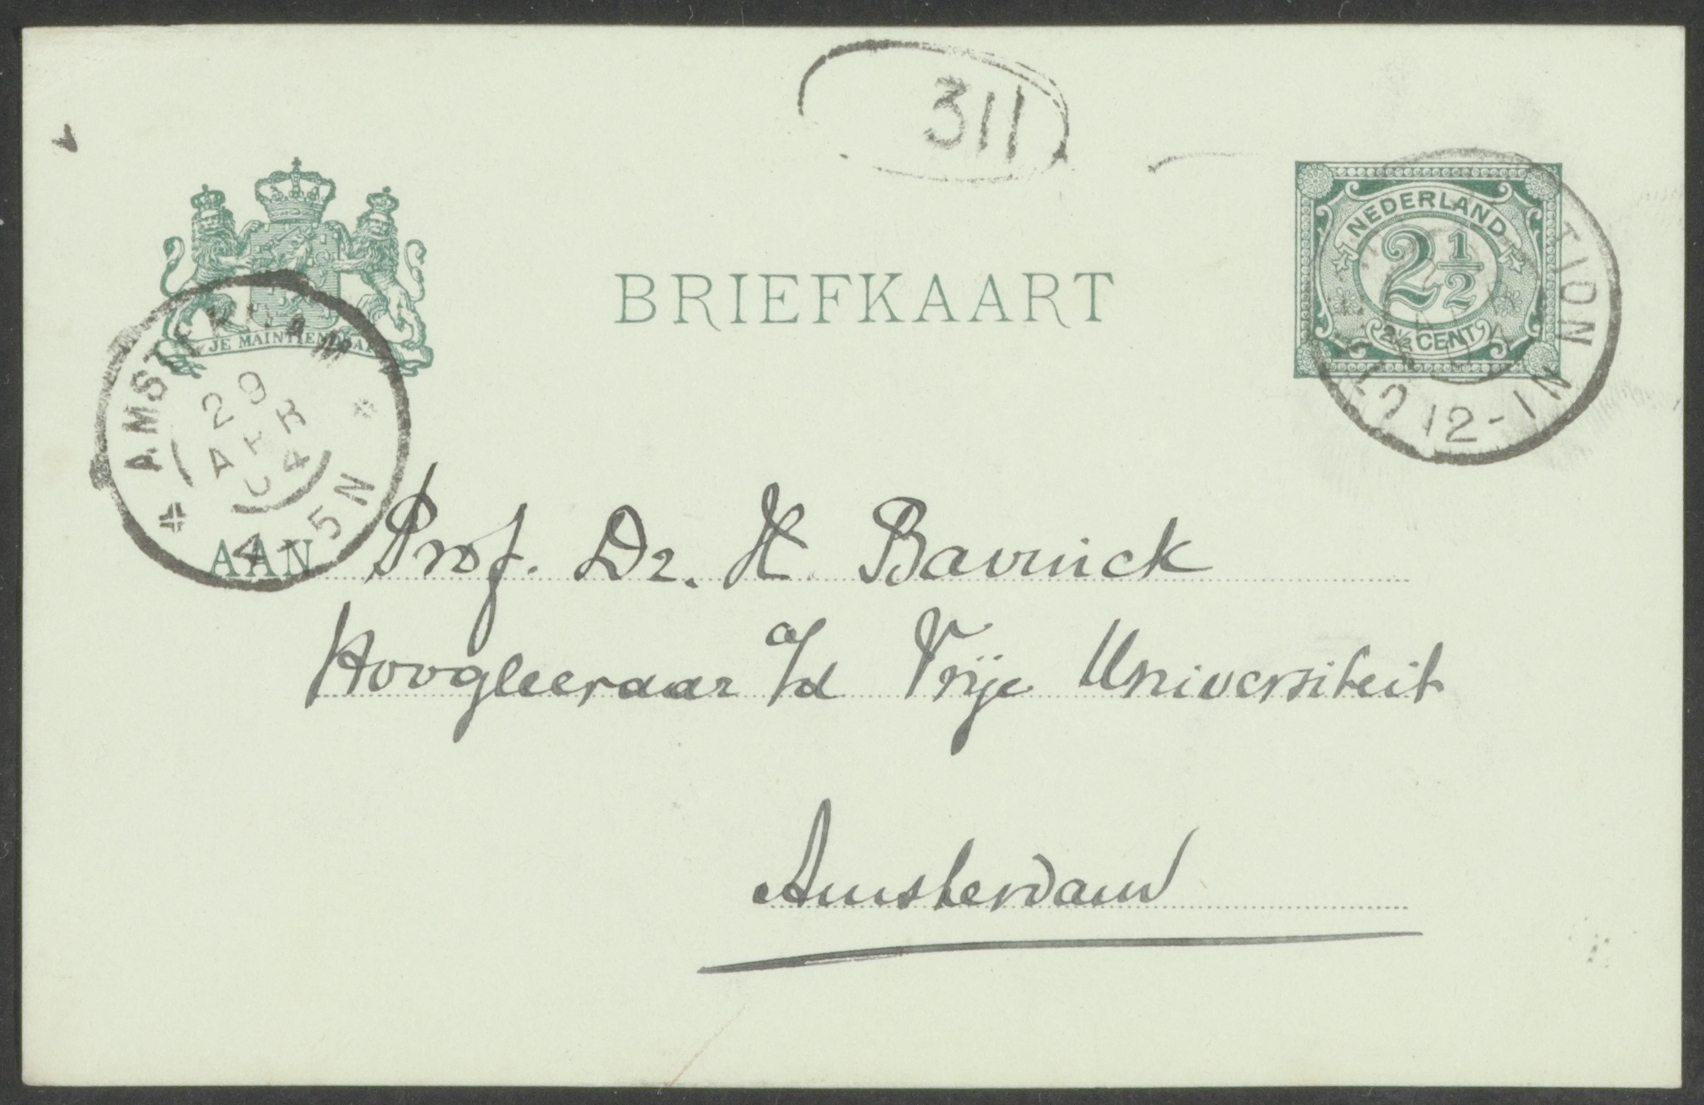 311
BRIEFKAART
NEDERLAND
2 1/2
2½ CENT
TION
12-1N
JE MAINTIENDRAI
AMSTERDAM
29
APR
04
4-5N
AAN Prof. Dr. H Bavinck
Hoogleeraar a/d Vrije Universiteit
Amsterdam